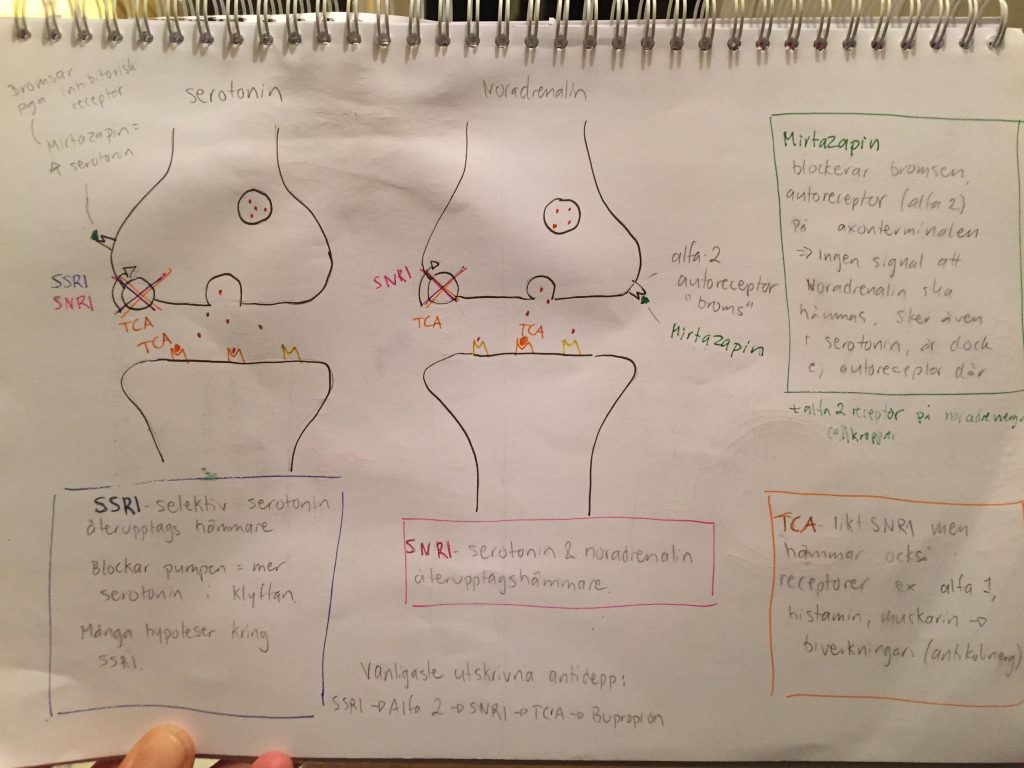 Bromsar
pga inhibitorisk
receptor
Mirtazapin =
serotonin
serotonin
Noradrenalin
SSRI
SNRI
TCA
TCA
SNRI
TCA
TCA
alfa-2
autoreceptor
"broms"
Mirtazapin
Mirtazapin
blockerar bromsen,
autoreceptor (alfa 2)
på axonterminalen
⇒ Ingen signal att
Noradrenalin ska
hämmas. Sker även
i serotonin, är dock
ej autoreceptor där
+ alfa 2 receptor på noradrenerg.
cellkroppar
SSRI - selektiv serotonin
återupptags hämmare
Blockar pumpen = mer
serotonin i klyftan.
Många hypoteser kring
SSRI.
SNRI - serotonin & noradrenalin
återupptagshämmare.
TCA - likt SNRI men
hämmar också
receptorer ex alfa 1,
histamin, muskarin →
biverkningar (antikolinerg)
Vanligaste utskrivna antidepp:
SSRI → Alfa 2 → SNRI → TCA → Bupropion